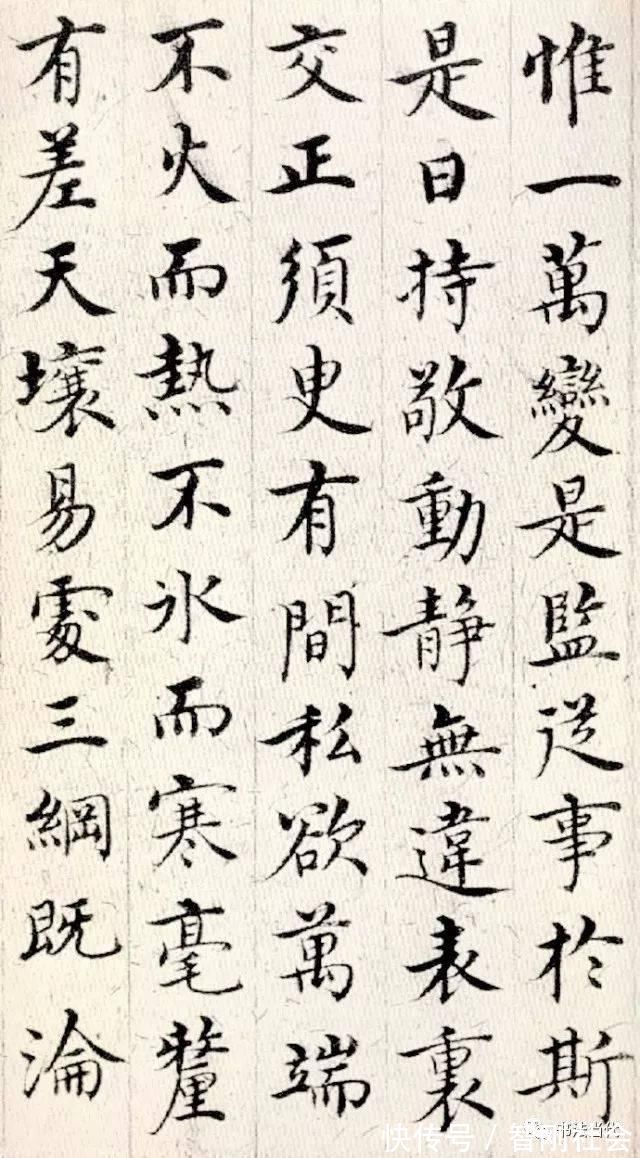 惟一萬變是監從事於斯
是曰持敬動静無違表裏
交正須臾有間私欲萬端
不火而熱不氷而寒毫釐
有差天壤易處三綱既淪
快传号 / 智刚社会